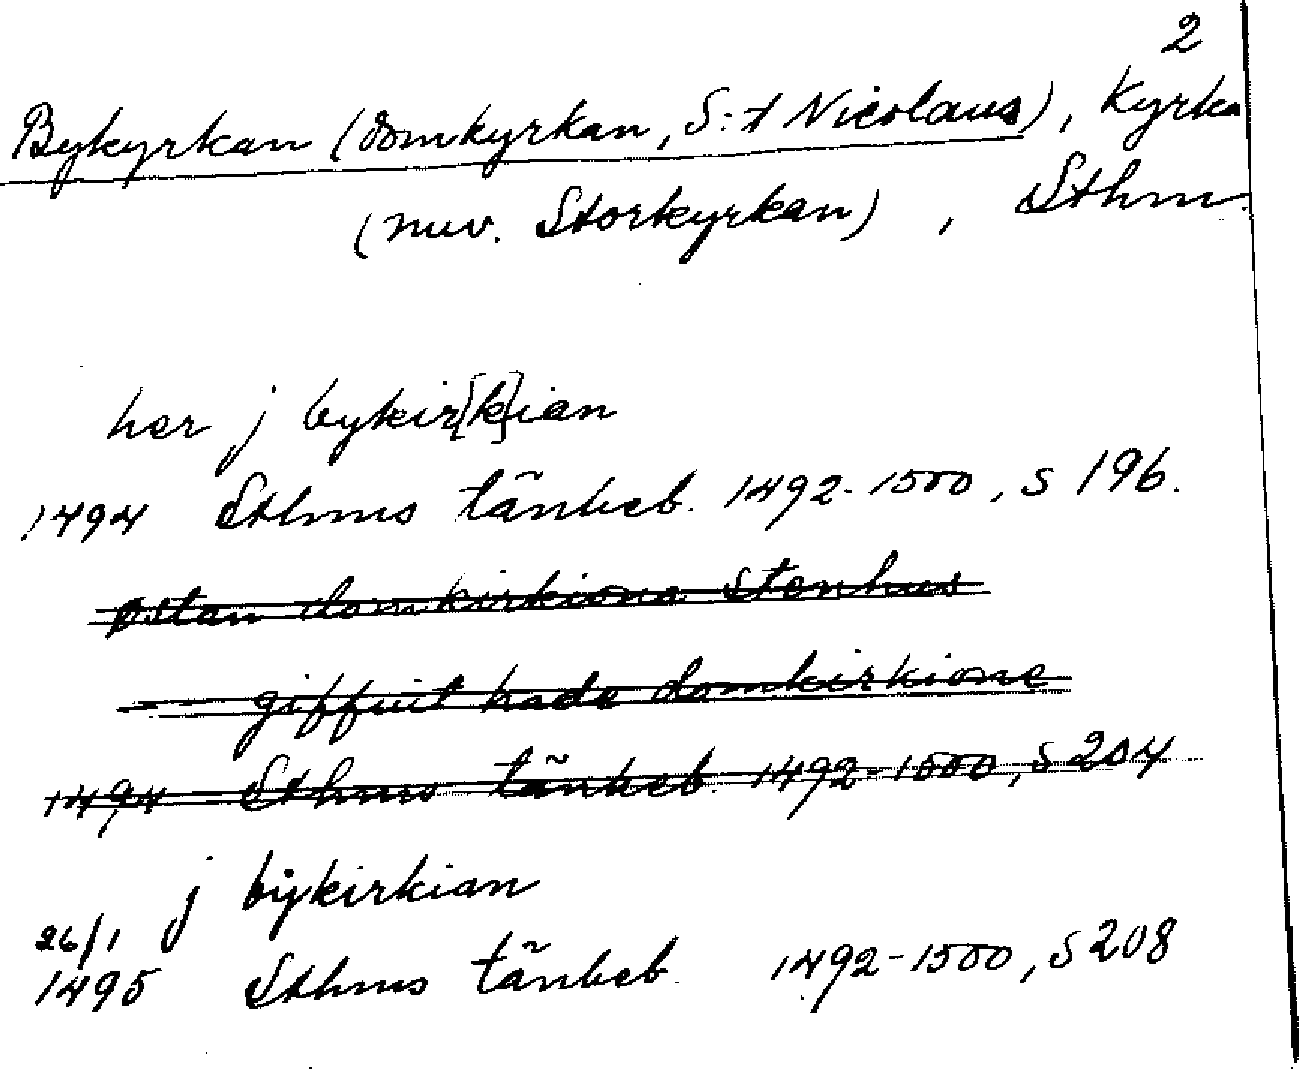 2
Bykyrkan (domkyrkan, S:t Nicolaus), Kyrka
(nuv. Storkyrkan), Sthm
her j bykir[k]ian
1494 Sthms tänkeb. 1492-1500, s 196.
østan domkirkiona stenhus
giffuit hade domkirkione
1494 Sthms tänkeb. 1492-1500, s 204
j bÿkirkian
26/1
1495 Sthms tänkeb. 1492-1500, s 208